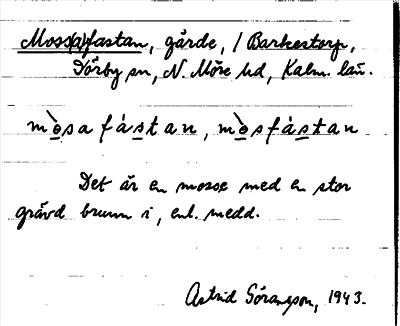 Moss(a)fastan, gärde, / Barkestorp,
Dörby sn, N. Möre hd, Kalm. län.
mò̲sa fás̲tan, mò̲sfás̲tan
Det är en mosse med en stor
grävd brunn i, enl. medd.
Astrid Göransson, 1943.